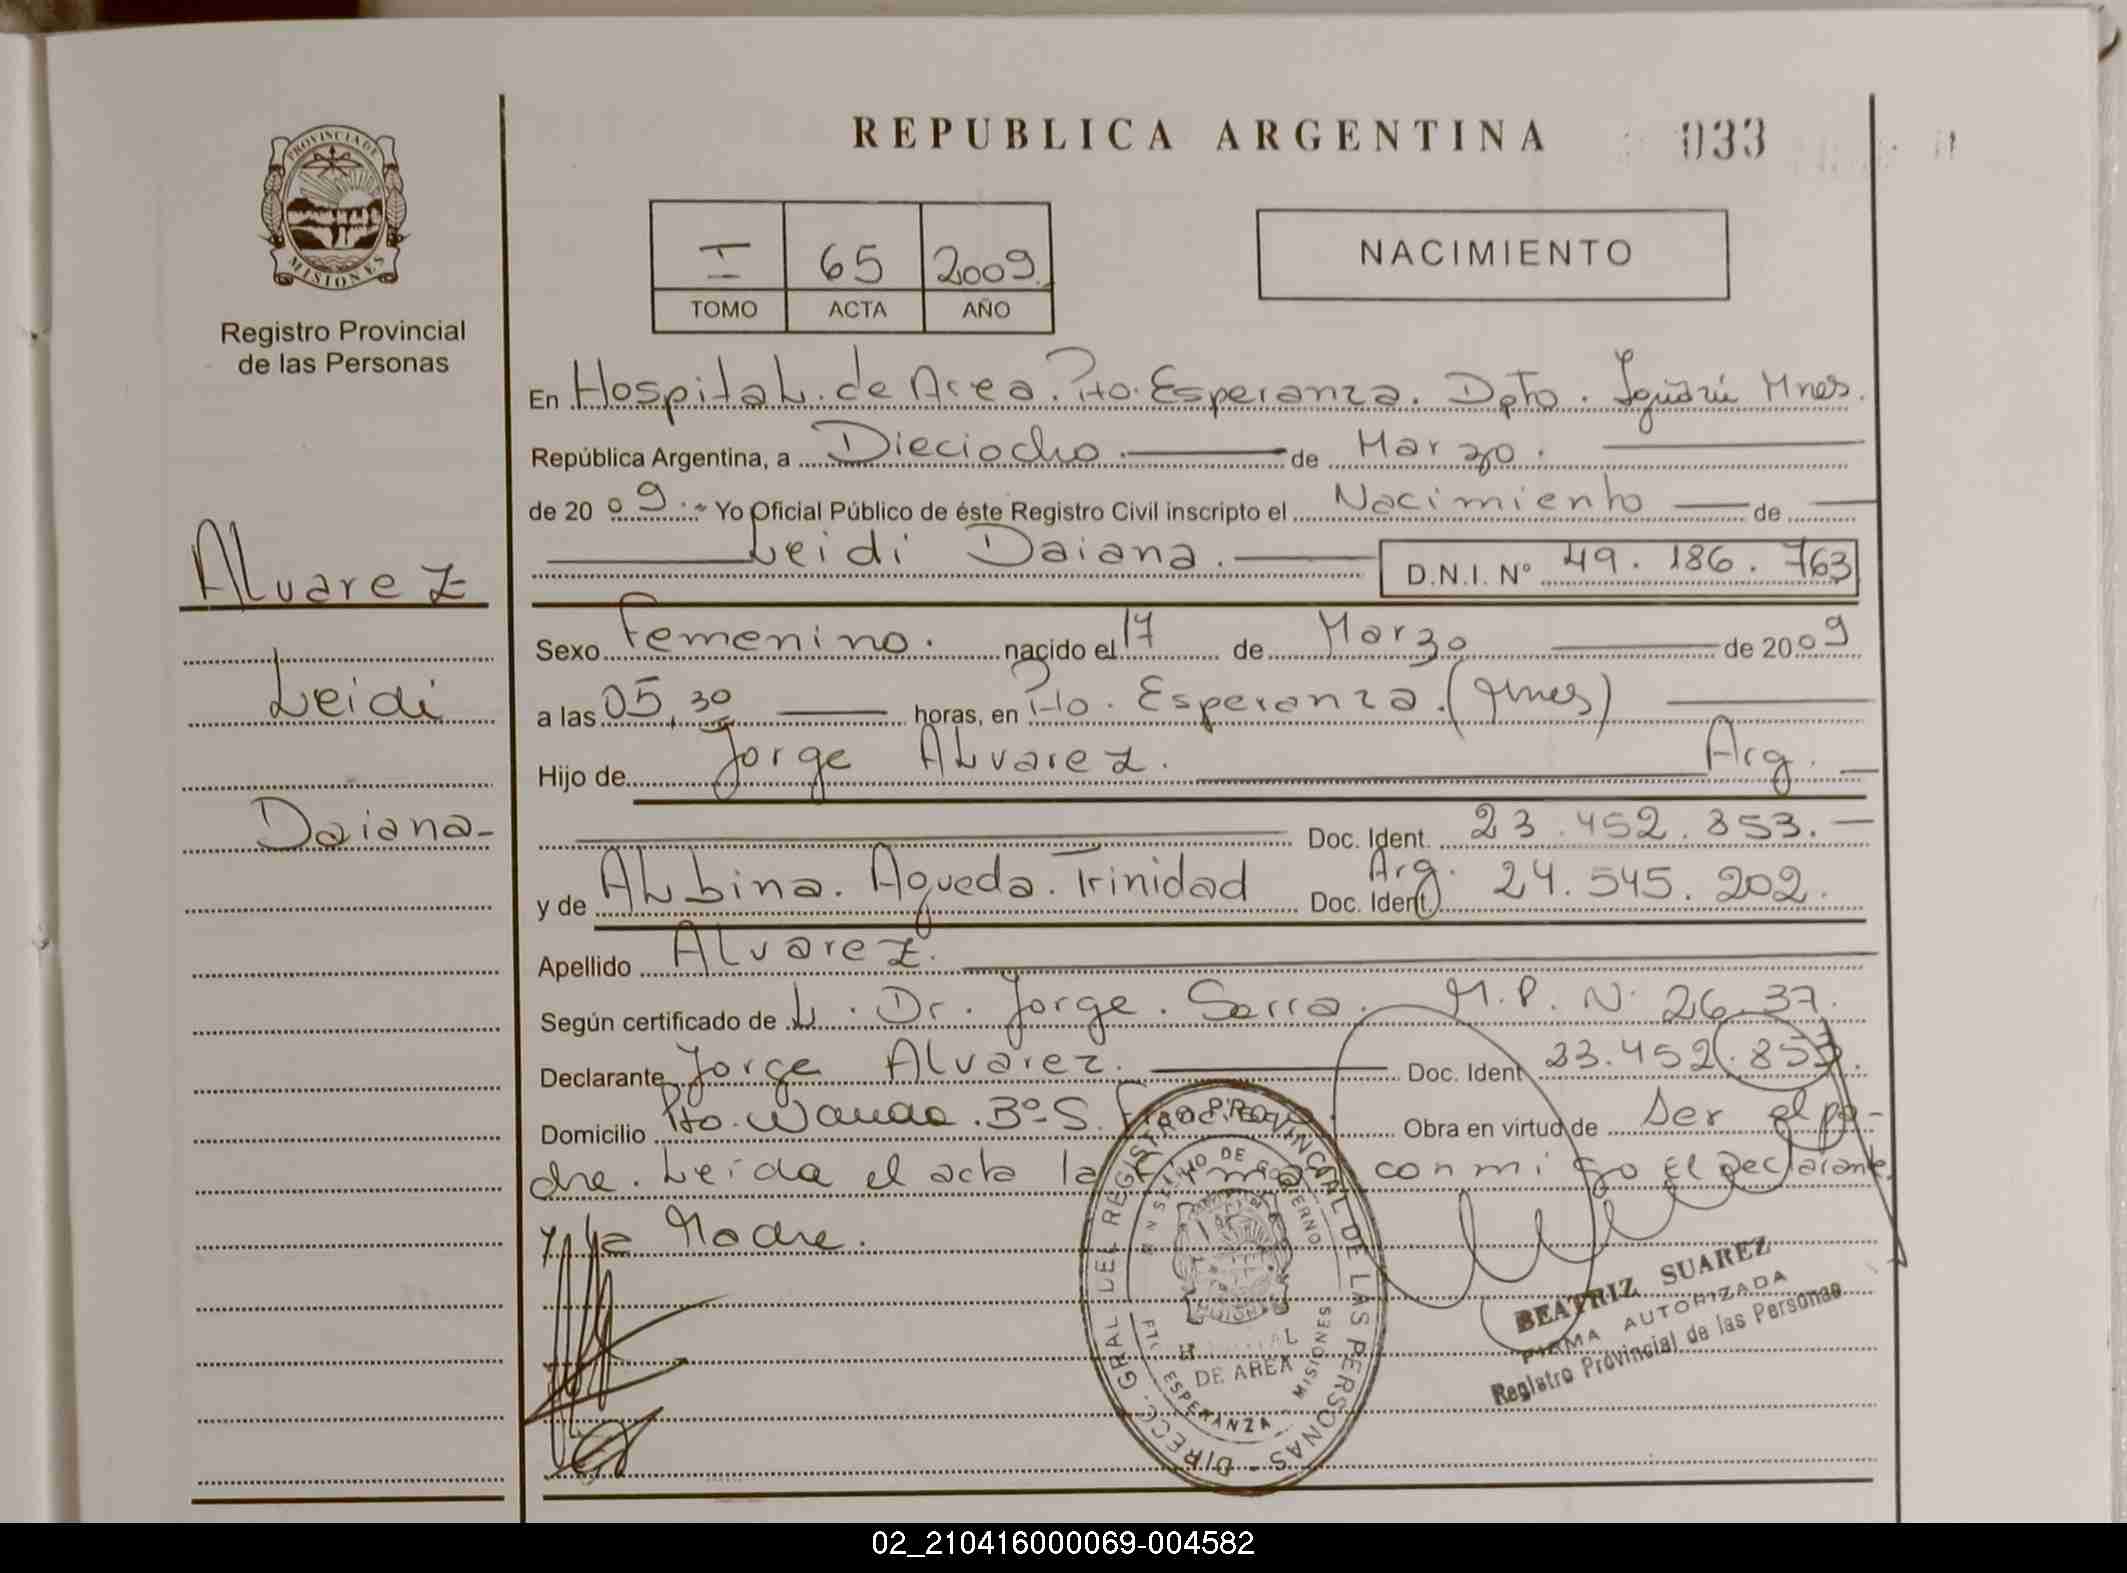 REPUBLICA ARGENTINA
033
PROVINCIA DE
MISIONES
Registro Provincial
de las Personas
I 65 2009
TOMO ACTA AÑO
NACIMIENTO
Alvarez
Leidi
Daiana-
En Hospital de Area. Pto. Esperanza. Dpto. Iguazú Mnes.
República Argentina, a Dieciocho de Marzo.
de 2009 Yo Oficial Público de éste Registro Civil inscripto el Nacimiento de
Leidi Daiana. D.N.I. Nº 49.186.763
Sexo Femenino. nacido el 17 de Marzo de 2009
a las 05,30 horas, en Pto. Esperanza.(Mnes)
Hijo de Jorge Alvarez. Arg.
Doc. Ident. 23.452.853.
y de Albina. Agueda. Trinidad Arg. Doc. Ident. 24.545.202.
Apellido Alvarez.
Según certificado de L. Dr. Jorge. Sarra. M.P. N. 26.37.
Declarante Jorge Alvarez. Doc. Ident 23.452.853.
Domicilio Pto. Wanda. Bº S. Obra en virtud de Ser el pa-
dre. Leída el acta la firman conmigo El Declarante
y la Madre.
DIRECC. GRAL DEL REGISTRO PROVINCIAL DE LAS PERSONAS
DE AREA
ESPERANZA - MISIONES
BEATRIZ SUAREZ
FIRMA AUTORIZADA
Registro Provincial de las Personas
02_210416000069-004582